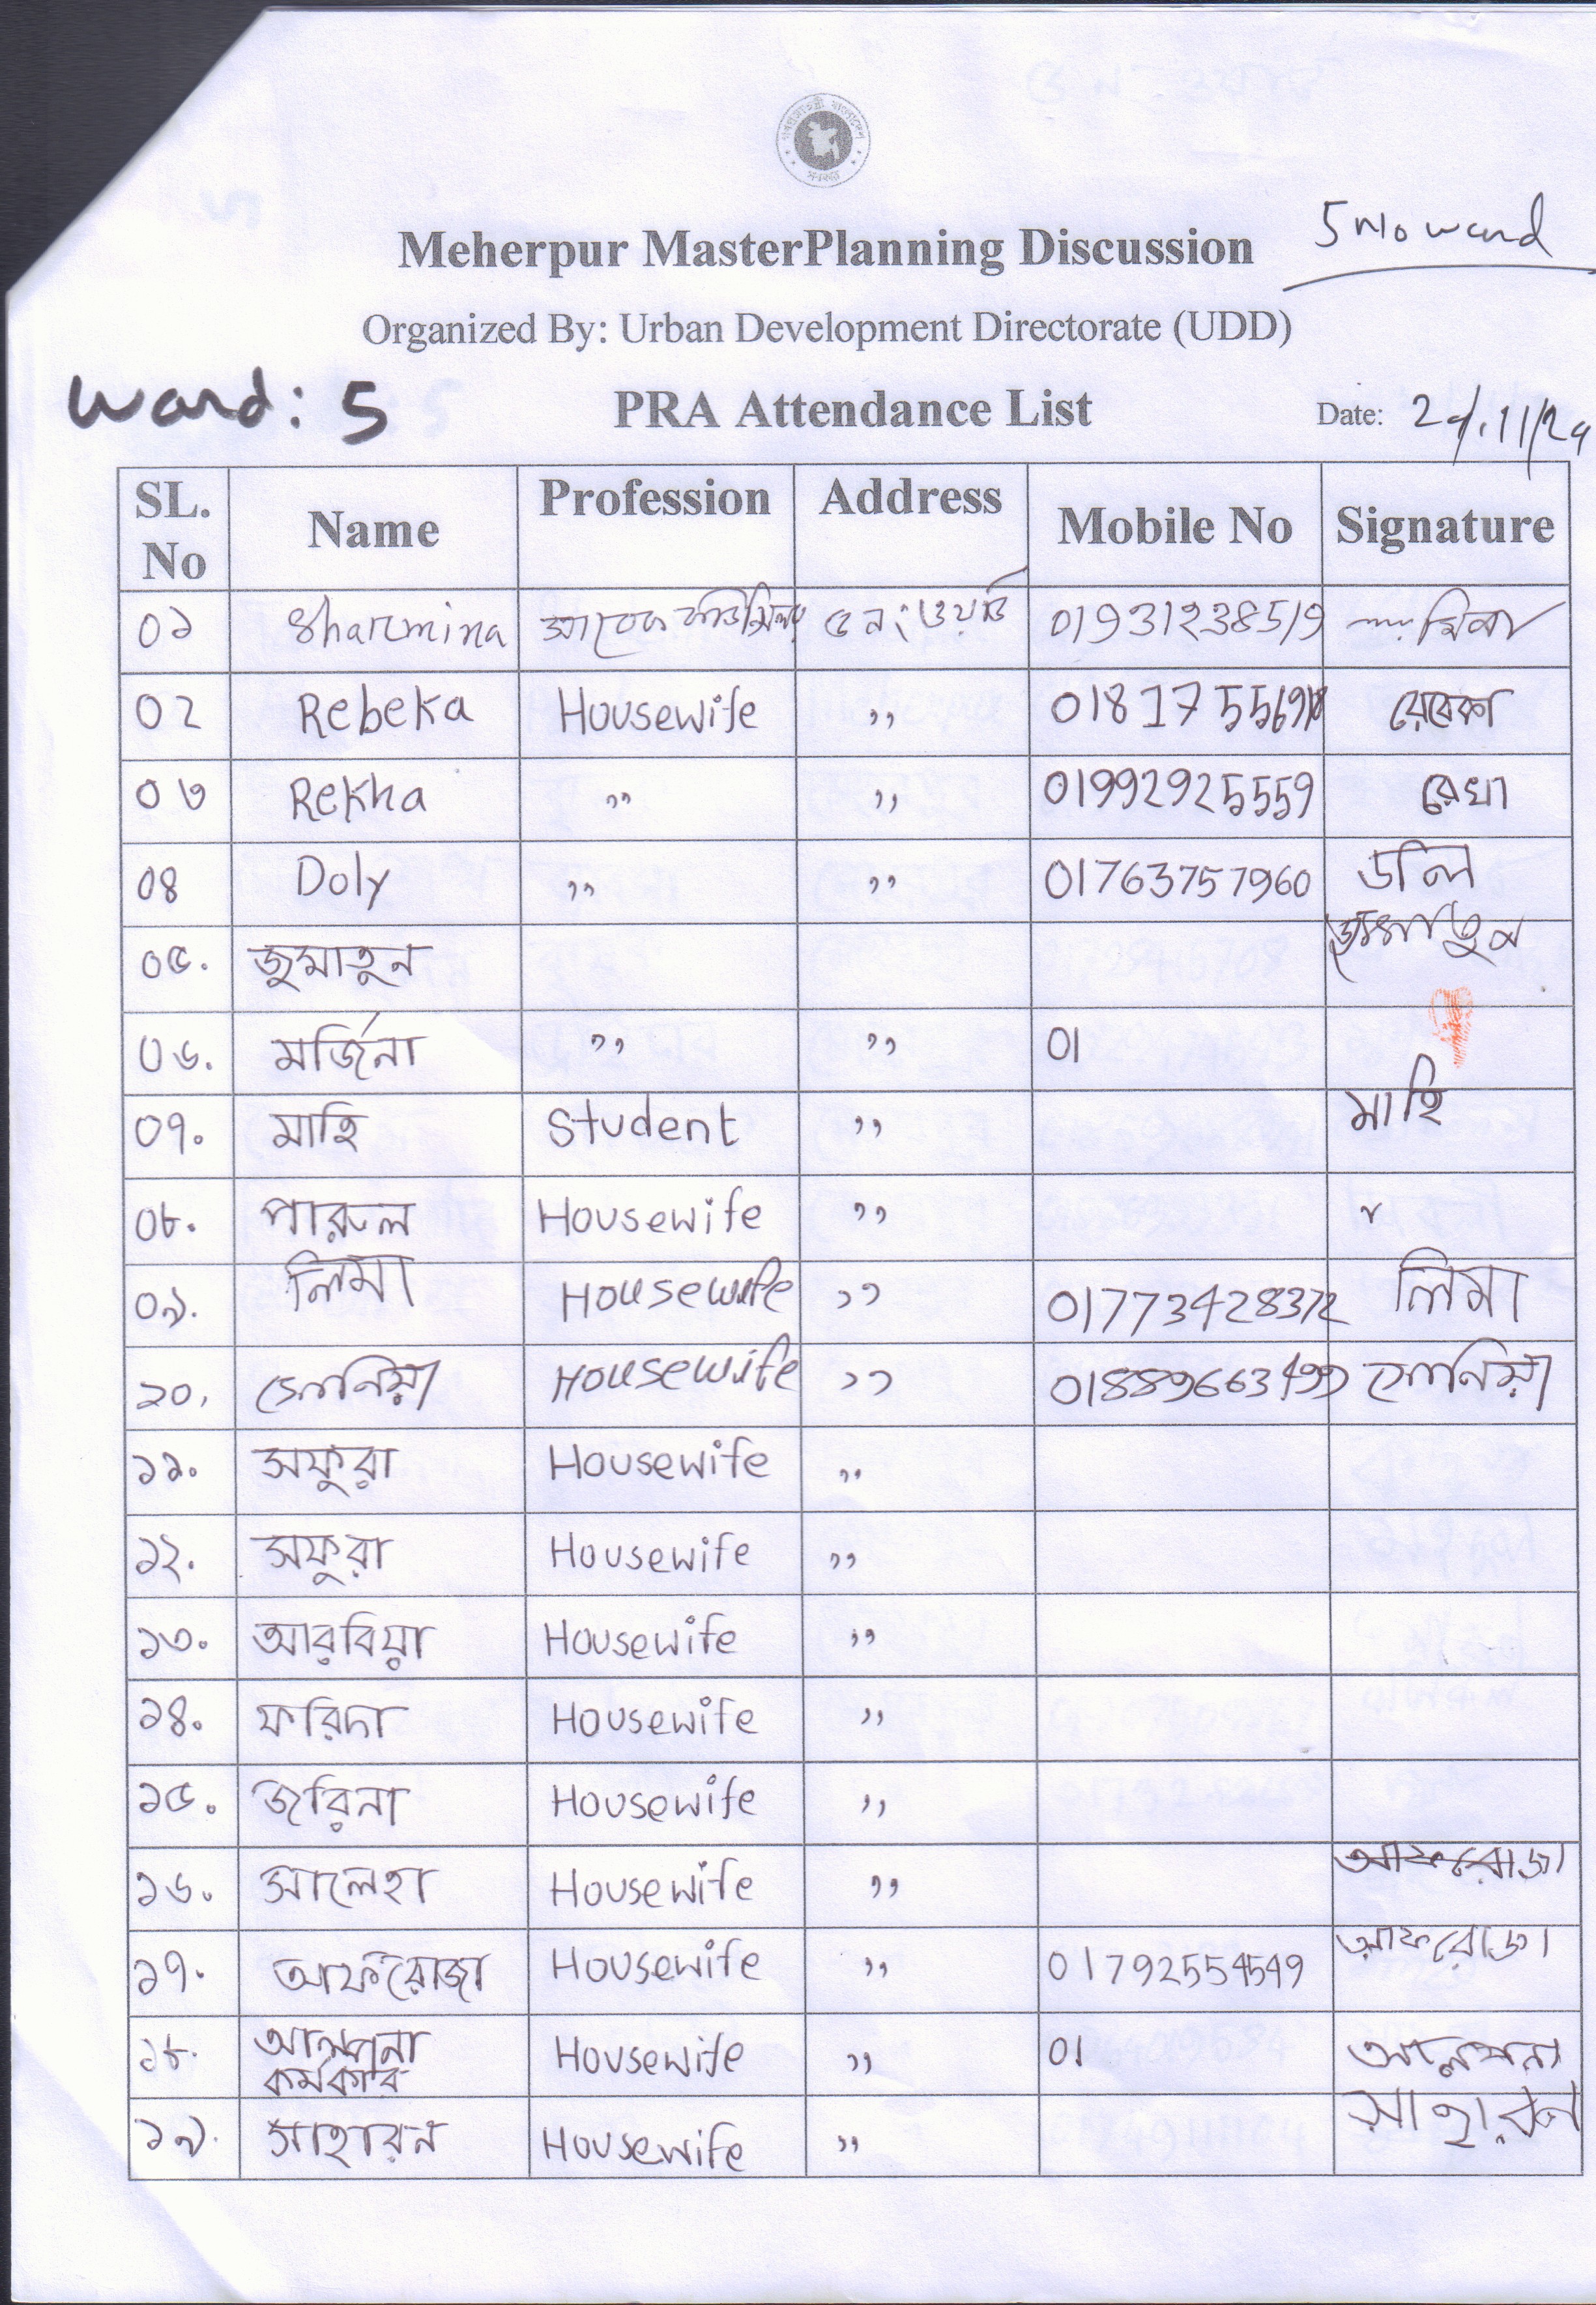 গণপ্রজাতন্ত্রী বাংলাদেশ সরকার
5 no ward
Meherpur MasterPlanning Discussion
Organized By: Urban Development Directorate (UDD)
Ward: 5 PRA Attendance List Date:
SL. No Name Profession Address Mobile No Signature
০১ Sharmina সাবেক কাউন্সিলর ৫ নং ওয়ার্ড 01931238519
০২ Rebeka Housewife ,, রেবেকা
০৩ Rekha ,, ,, 01992925559 রেখা
08 Doly ,, ,, 01763757960 ডলি
০৫. জুমাতুন
০৬. মর্জিনা ,, ,, 01
০৭. মাহি Student ,, মাহি
০৮. পারুল Housewife ,,
০৯. লিমা Housewife ,, 01773428372 লিমা
১০. সোনিয়া Housewife ,, সোনিয়া
১১. সফুরা Housewife ,,
১২. সফুরা Housewife ,,
১৩. আরবিয়া Housewife ,,
১৪. ফরিদা Housewife ,,
১৫. জরিনা Housewife ,,
১৬. সালেহা Housewife ,, আফরোজা
১৭. আফরোজা Housewife ,, 01792554549 আফরোজা
১৮. আলপনা কর্মকার Housewife ,, 01 আলপনা
১৯. সাহারন Housewife ,, সাহারন